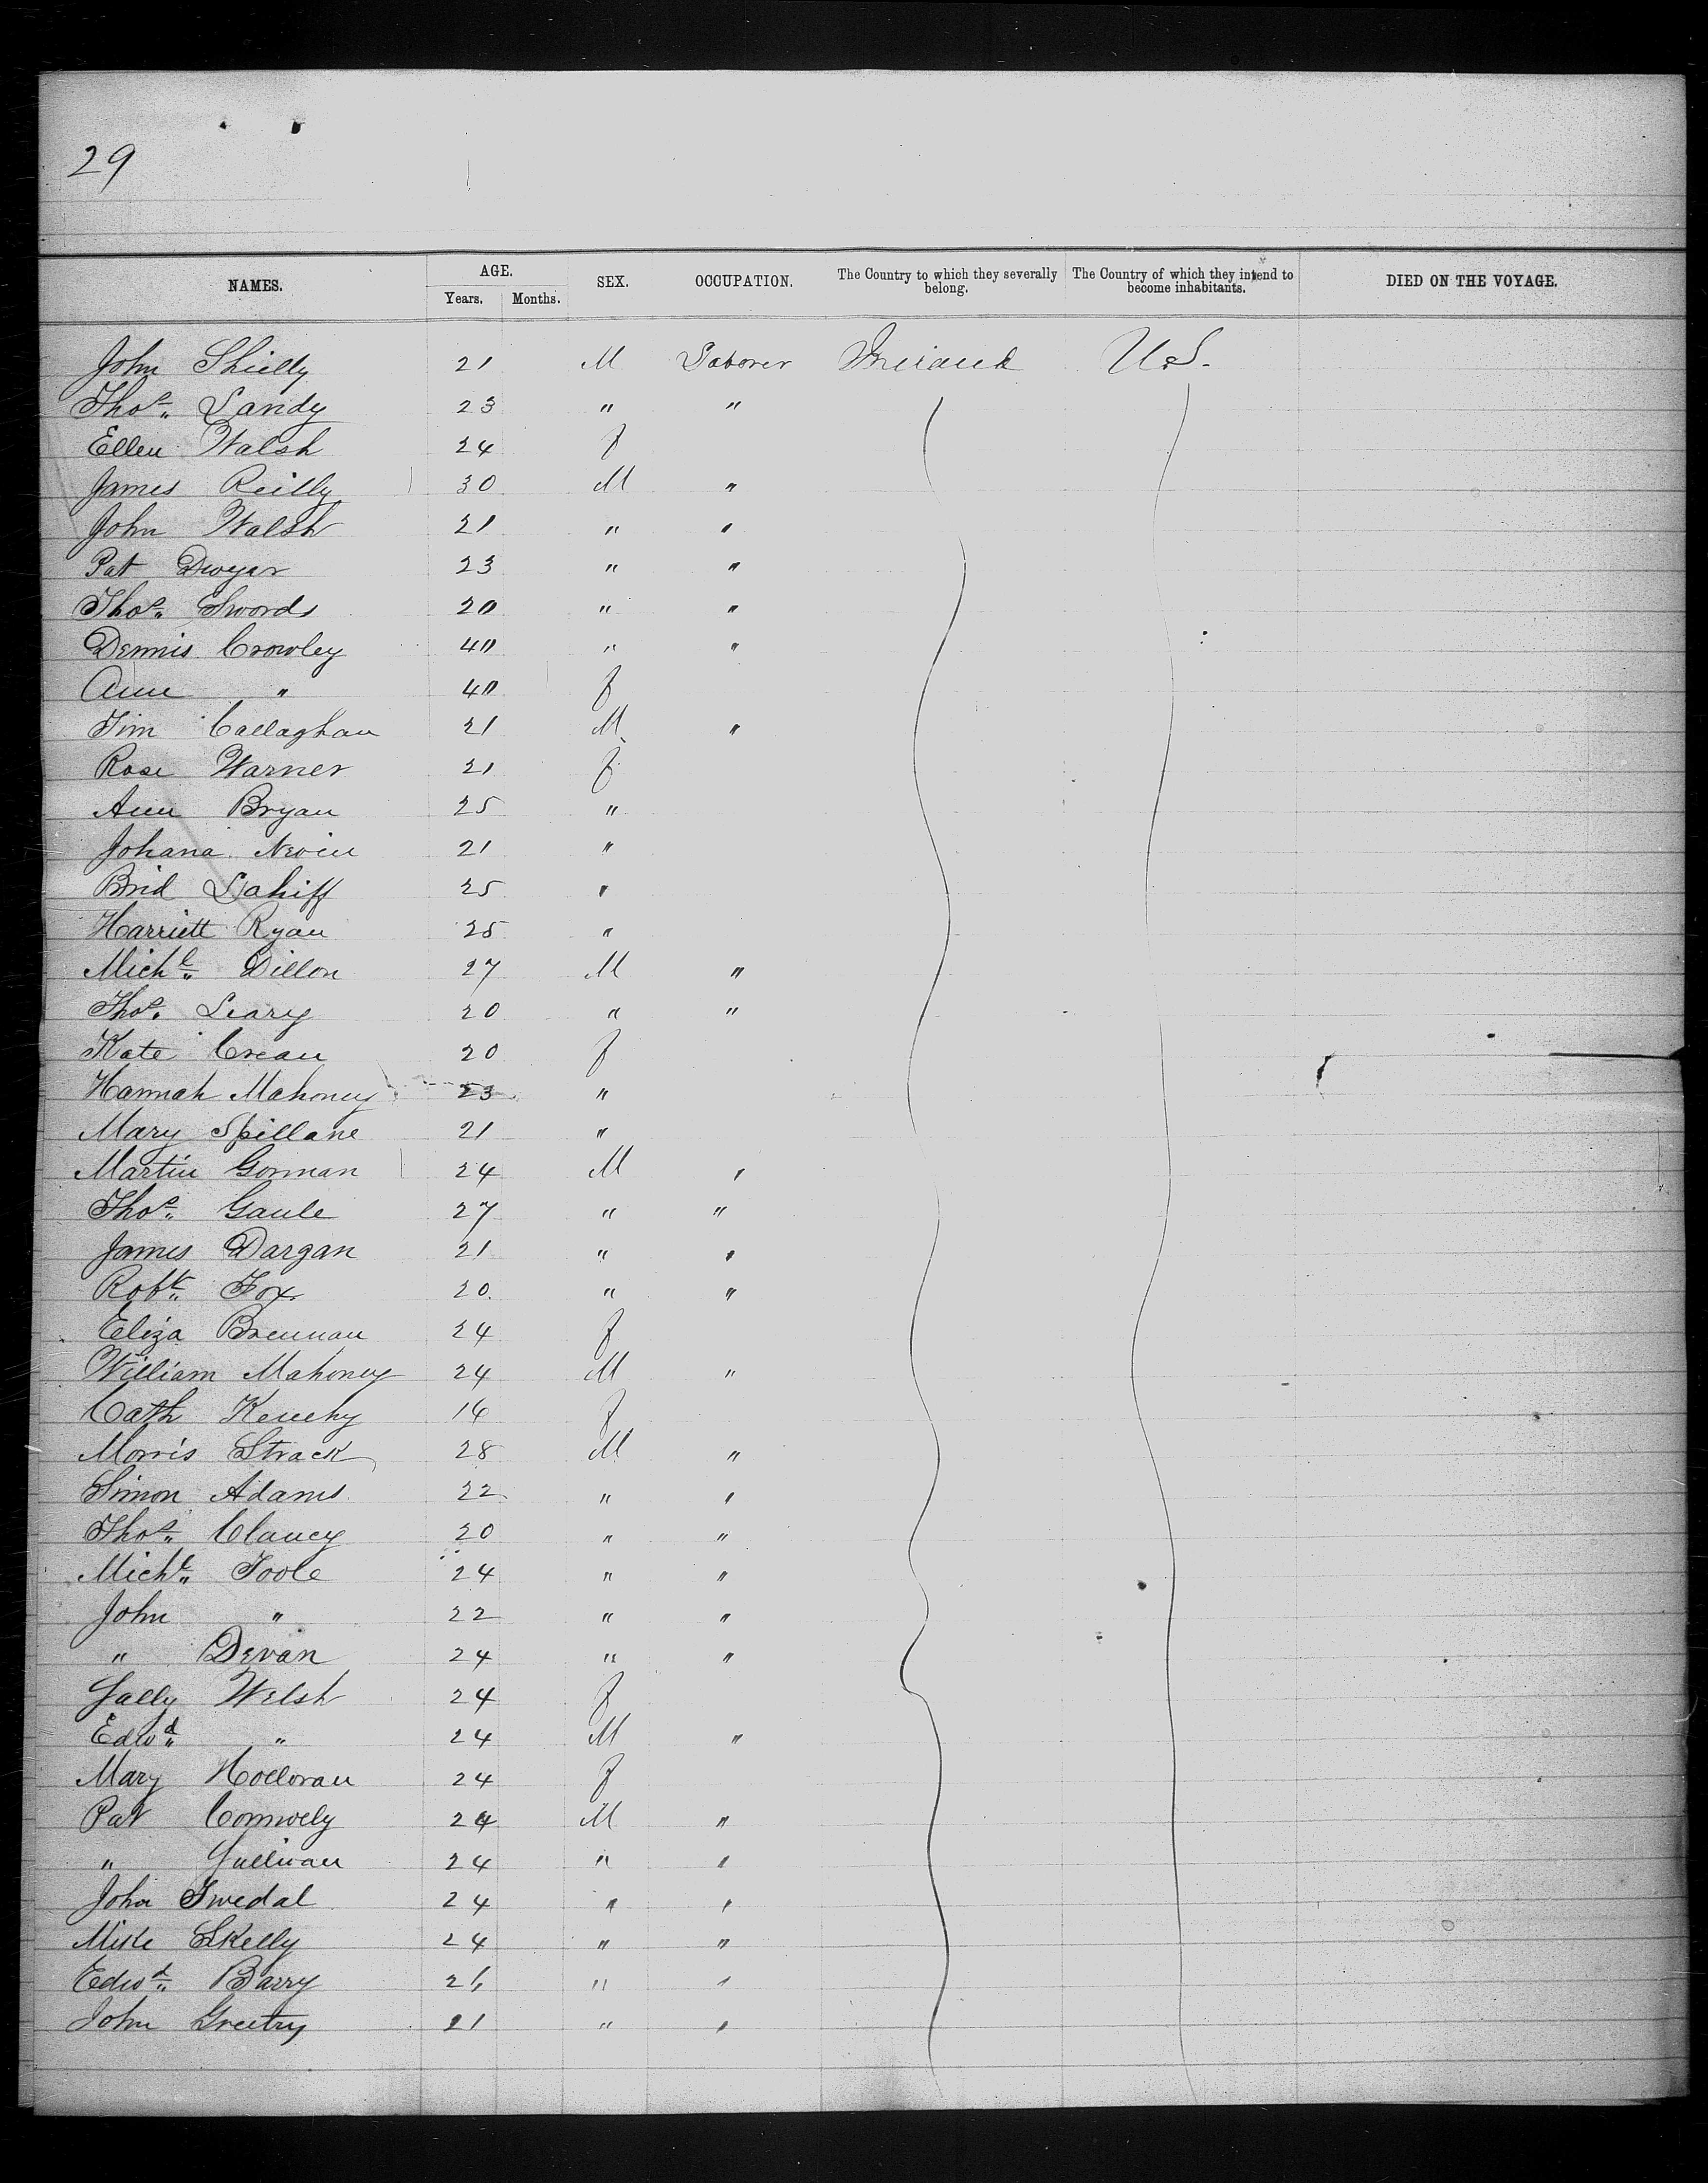 29
NAMES. AGE. Years. Months. SEX. OCCUPATION. The Country to which they severally belong. The Country of which they intend to become inhabitants. DIED ON THE VOYAGE.
John Shielly 21 M Laborer Ireland U.S.
Thos. Landy 23 " "
Ellen Walsh 24 f
James Reilly 30 M "
John Walsh 21 " "
Pat Dwyer 23 " "
Thos. Swords 20 " "
Dennis Crowley 40 " "
Ann " 40 f
Tim Callaghan 21 M "
Rose Warner 21 f
Ann Bryan 25 "
Johana Nevin 21 "
Brid Lahiff 25 "
Harriett Ryan 25 "
Michl. Dillon 27 M "
Thos. Leary 20 " "
Kate Crean 20 f
Hannah Mahoney 23 "
Mary Spillane 21 "
Martin Gorman 24 M "
Thos. Gaule 27 " "
James Dargan 21 " "
Robt. Fox 20 " "
Eliza Brennan 24 f
William Mahoney 24 M "
Cath 16 f
Morris Strack 28 M "
Simon Adams 22 " "
Thos. Clancy 20 " "
Michl. Toole 24 " "
John " 22 " "
" Devan 24 " "
Sally Welsh 24 f
Edwd. " 24 M "
Mary Holloran 24 f
Pat Connwely 24 M "
" Sullivan 24 " "
John Swedal 24 " "
Mike Skelly 24 " "
Edwd. Barry " "
John 21 " "